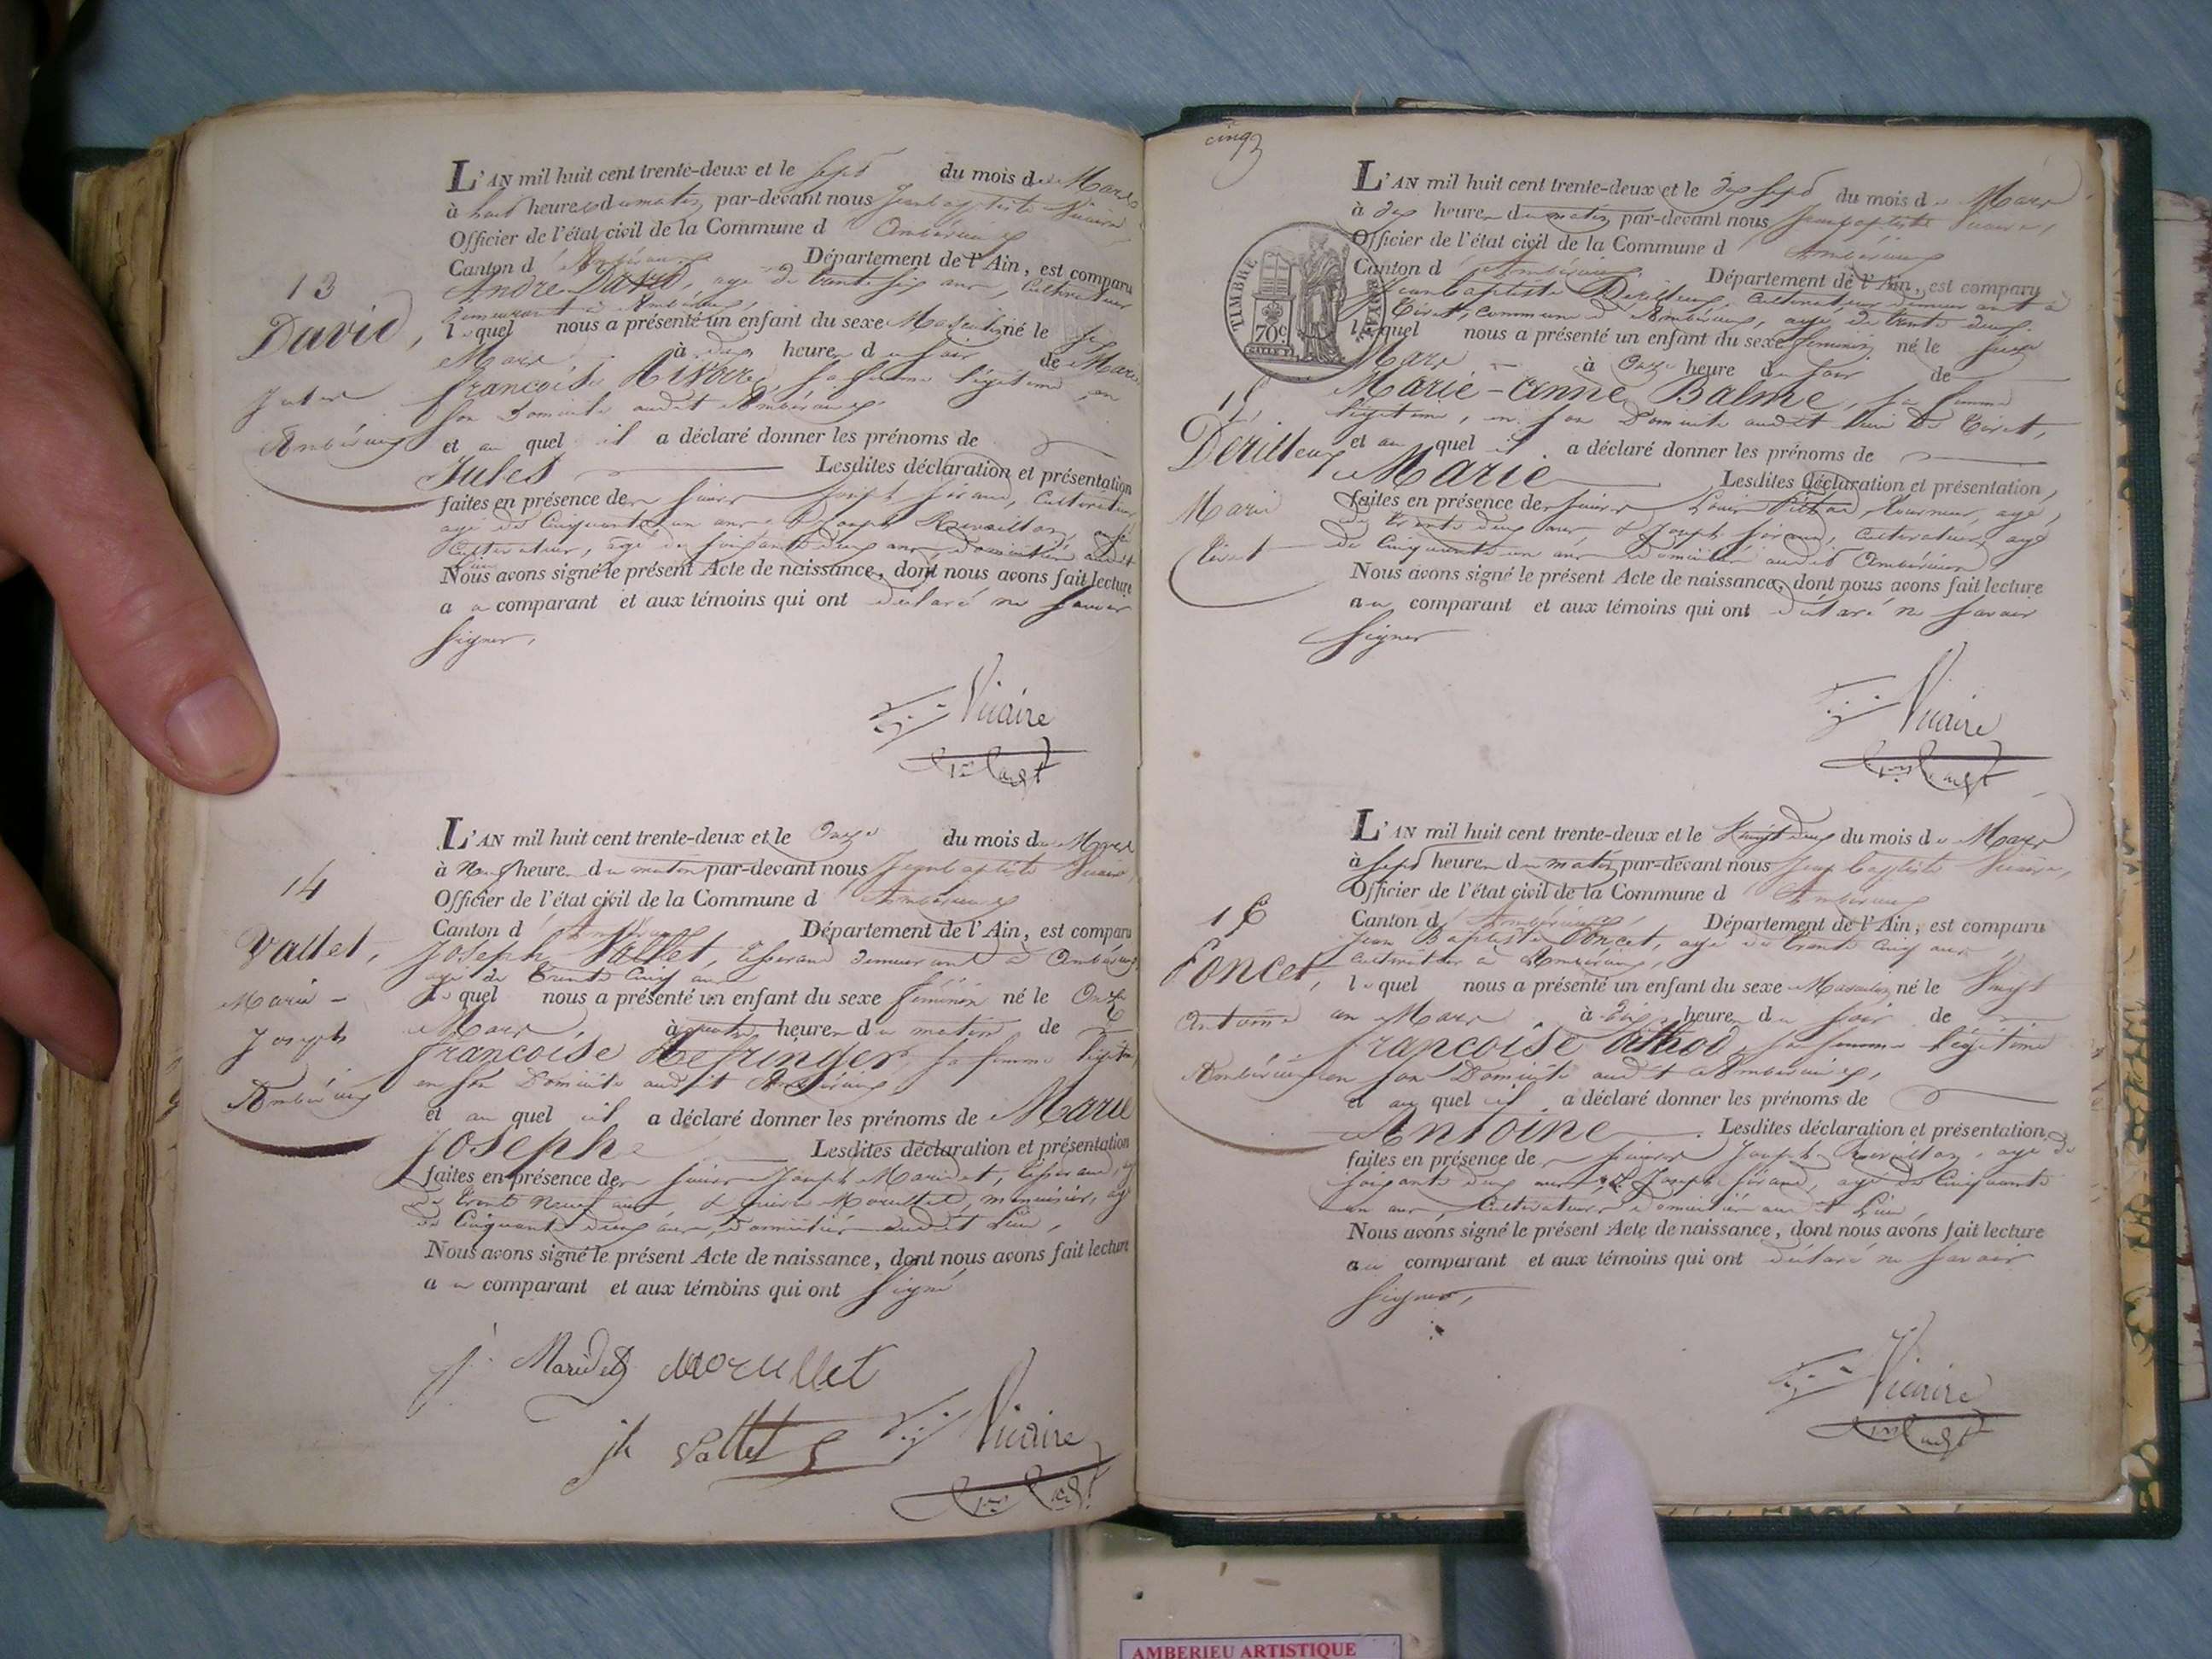 13
David,
Jules
Ambérieux
L'AN mil huit cent trente-deux et le sept du mois de Mars
à huit heures du matin par-devant nous Jean baptiste Vicaire
Officier de l'état civil de la Commune d Ambérieux
Canton d Ambérieux Département de l'Ain, est comparu
André David, agé de trente six ans, Cultivateur
demeurant à Ambérieux,
lequel nous a présenté un enfant du sexe Masculin né le six
Mars à dix heures du soir de
françoise, sa femme légitime, en
son Domicile audit Ambérieux
et au quel il a déclaré donner les prénoms de
Jules Lesdites déclaration et présentation
faites en présence des sieurs Joseph, Cultivateur
agé de Cinquante un ans & Joseph Revaillon, aussi
Cultivateur, agé de soixante deux ans, domiciliés audit
lieu
Nous avons signé le présent Acte de naissance, dont nous avons fait lecture
au comparant et aux témoins qui ont déclaré ne savoir
signer,
Vicaire
14
Vallet,
Marie-
Joseph
Ambérieux
L'AN mil huit cent trente-deux et le Onze du mois de Mars
à Neuf heures du matin par-devant nous Jean baptiste Vicaire,
Officier de l'état civil de la Commune d Ambérieux
Canton d Ambérieux Département de l'Ain, est comparu
Joseph Vallet, tisserand demeurant à Ambérieux
agé de trente cinq ans
lequel nous a présenté un enfant du sexe féminin né le Onze
Mars, à quatre heures du matin de
françoise, sa femme légitime,
en son Domicile audit Ambérieux,
et au quel il a déclaré donner les prénoms de Marie
Josephe Lesdites déclaration et présentation
faites en présence des sieurs Joseph Maridet, tisserand, agé
de trente neuf ans & Morullet, menuisier, agé
de Cinquante deux ans, domiciliés audit Lieu,
Nous avons signé le présent Acte de naissance, dont nous avons fait lecture
au comparant et aux témoins qui ont signé
j. Maridet Morullet
jh Vallet Vicaire
cinq
TIMBRE ROYAL
70c
15
Derilleux
Marie
Tiret
L'AN mil huit cent trente-deux et le dix sept du mois de Mars
à dix heures du matin par-devant nous Jean baptiste Vicaire,
Officier de l'état civil de la Commune d Ambérieux
Canton d Ambérieux Département de l'Ain, est comparu
Jean baptiste Derilleux, Cultivateur demeurant à
Tiret, commune d'Ambérieux, agé de trente deux
lequel nous a présenté un enfant du sexe féminin né le seize
Mars à Onze heure du soir de
Marie-Anne Balme, sa femme
légitime, en son Domicile audit lieu de Tiret,
et au quel il a déclaré donner les prénoms de
Marie Lesdites déclaration et présentation,
faites en présence des sieurs Louis, tourneur, agé
de trente deux ans, & Joseph, Cultivateur, agé
de Cinquante un ans domiciliés audit Ambérieux
Nous avons signé le présent Acte de naissance, dont nous avons fait lecture
au comparant et aux témoins qui ont déclaré ne savoir
signer
Vicaire
16
Poncet,
Antoine
Ambérieux
L'AN mil huit cent trente-deux et le Vingt deux du mois de Mars
à sept heures du matin par-devant nous Jean baptiste Vicaire,
Officier de l'état civil de la Commune d Ambérieux
Canton d Ambérieux Département de l'Ain, est comparu
Jean Baptiste Poncet, agé de trente cinq ans,
cultivateur à Ambérieux,
lequel nous a présenté un enfant du sexe Masculin né le Vingt
un Mars à dix heures du soir de
françoise, sa femme légitime
en son Domicile audit Ambérieux,
et au quel il a déclaré donner les prénoms de
Antoine Lesdites déclaration et présentation
faites en présence des sieurs Joseph Revaillon, agé de
soixante deux ans, & Joseph, agé de Cinquante
un ans, Cultivateurs domiciliés audit Lieu,
Nous avons signé le présent Acte de naissance, dont nous avons fait lecture
au comparant et aux témoins qui ont déclaré ne savoir
signer,
Vicaire
AMBERIEU ARTISTIQUE